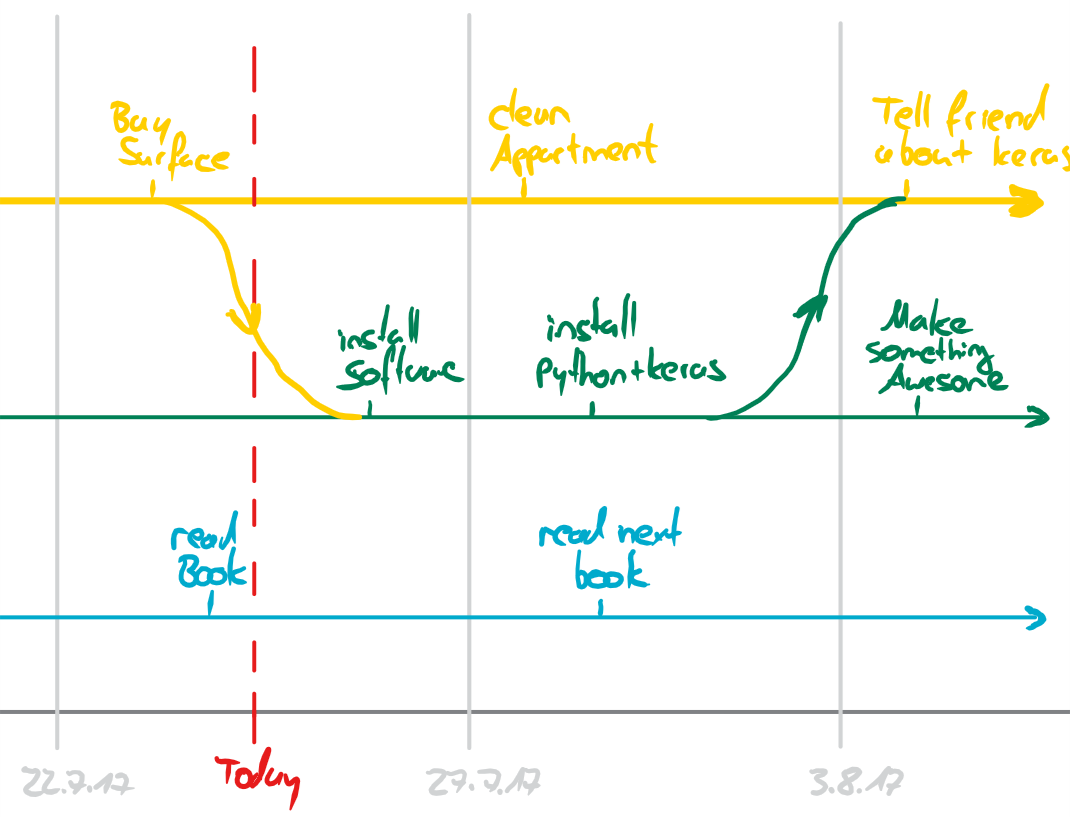 Buy
Surface
clean
Appartment
Tell friend
about keras
install
Software
install
Python+keras
Make
something
Awesome
read
Book
read next
book
22.7.17
Today
27.7.17
3.8.17